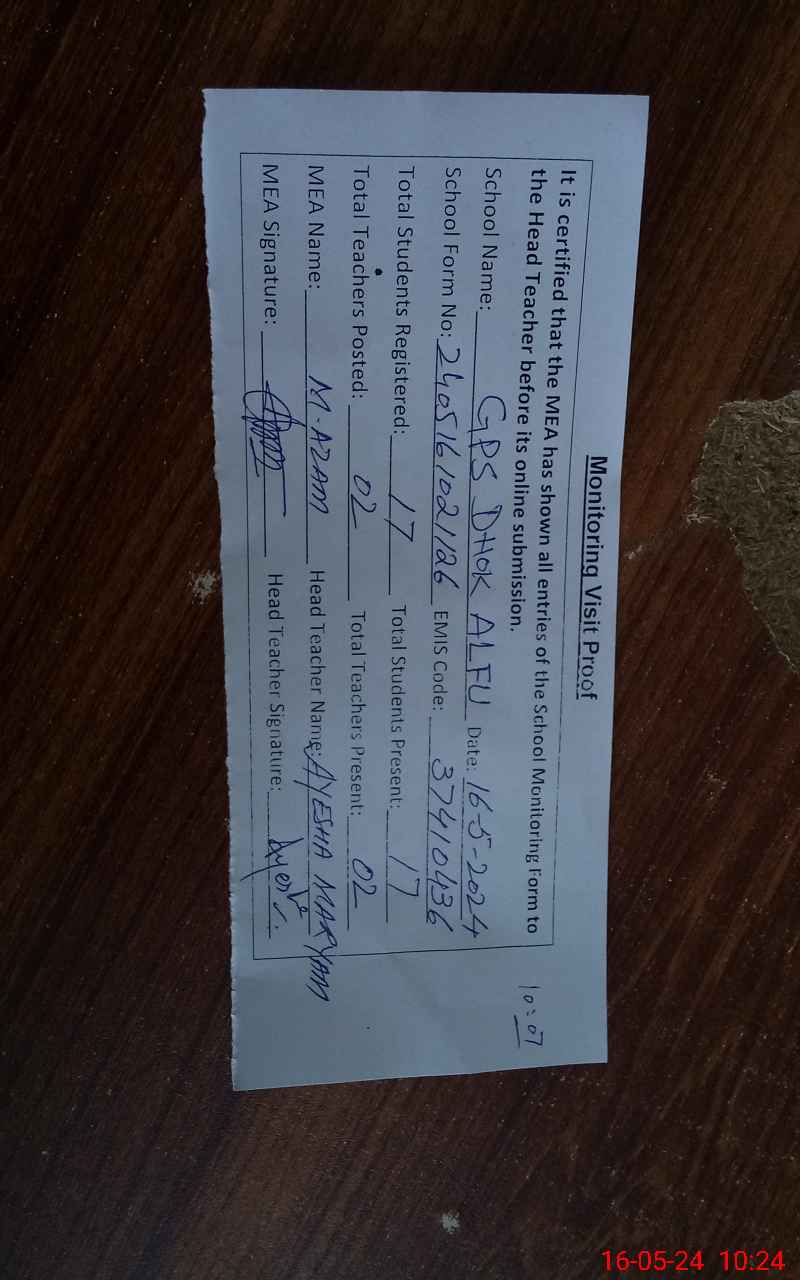 Monitoring Visit Proof
It is certified that the MEA has shown all entries of the School Monitoring Form to
the Head Teacher before its online submission.
10:07
School Name: GPS DHOK ALFU Date: 16-5-2024
School Form No: 2405161021126 EMIS Code: 37410436
Total Students Registered: 17 Total Students Present: 17
Total Teachers Posted: 02 Total Teachers Present: 02
MEA Name: M-AZAM Head Teacher Name: AYESHA MARYAM
MEA Signature: Head Teacher Signature:
16-05-24 10:24